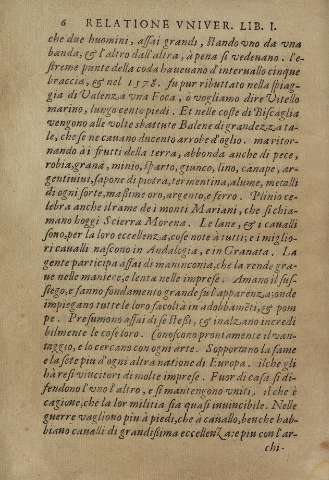 6 RELATIONE VNIVER. LIB. I.
che due huomini, assai grandi, stando vno da vna
banda, & l'altro dall'altra, à pena si vedeuano. l'e-
streme punte della coda haueuano d'interuallo cinque
braccia, & nel 1578. fu pur ributtato nella spiag-
gia di Valenza vna Foca, ò vogliamo dire Vitello
marino, lungo cento piedi. Et nelle coste di Biscaglia
vengono alle volte sbattute Balene di grandezza ta-
le, che se ne cauano ducento arrobe d'oglio. ma ritor-
nando à i frutti della terra, abbonda anche di pece,
robia, grana, minio, sparto, giunco, lino, canape, ar-
gentiuiut, sapone di pietra, termentina, alume, metalli
di ogni sorte, massime oro, argento, e ferro. Plinio ce-
lebra anche il rame de i monti Mariani, che si chia-
mano hoggi Scierra Morena. Le lane, & i caualli
sono, per la loro eccellenza, cose note à tutti; e i miglio-
ri caualli nascono in Andalogia, e in Granata. La
gente participa assai di maninconia, che la rende gra-
ue nelle maniere, e lenta nelle imprese. Amano il sus-
siego, e fanno fondamento grande su l'apparenza; onde
impiegano tutte le loro facoltà in adobbamēti, & pom
pe. Presumono assai di se stessi, & inalzano incredi
bilmente le cose loro. Conoscono prontamente il van-
taggio, e lo cercano con ogni arte. Sopportano la fame
e la sete più d'ogni altra natione di Europa. il che gli
hà resi vincitori di molte imprese. Fuor di casa si di-
fendono l'vno l'altro, e si mantengono vniti, il che è
cagione, che la lor militia sia quasi inuincibile. Nelle
guerre vagliono piu à piedi, che à cauallo, benche hab-
biano caualli di grandissima eccellenza: e piu con l'ar-
chi-